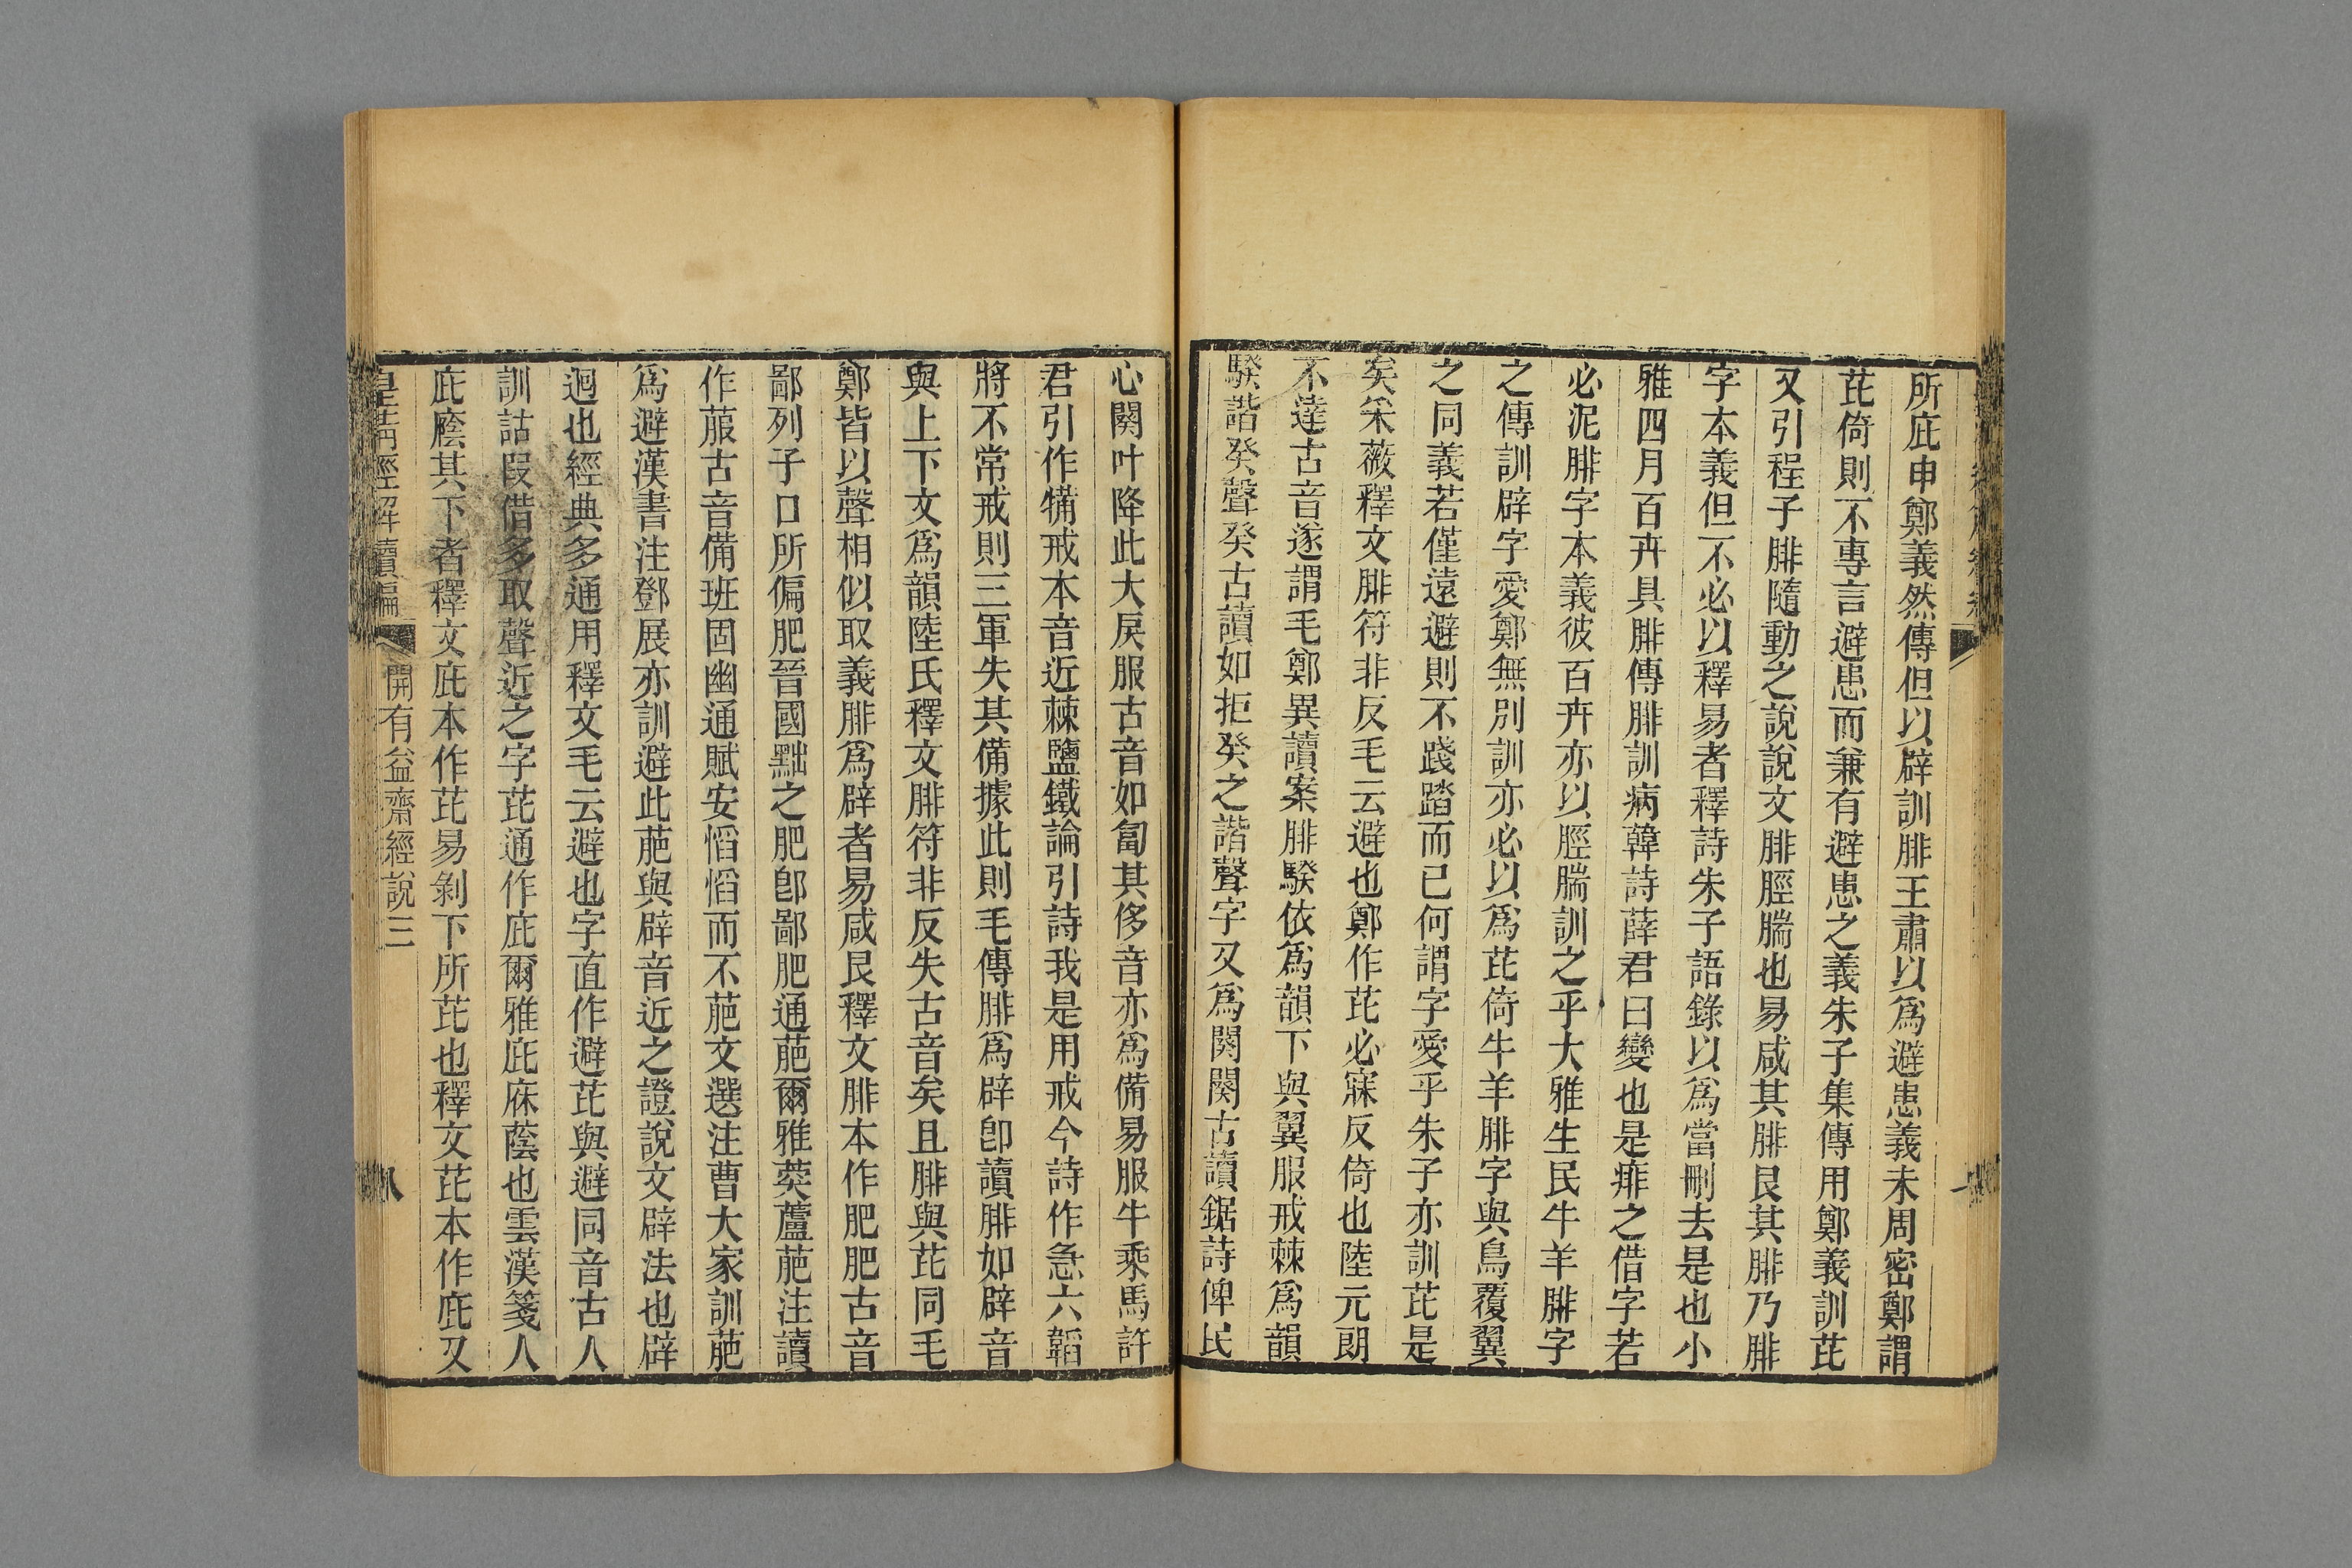 所庇申鄭義然傳但以辟訓腓王肅以爲避患義未周密鄭謂
芘倚則不專言避患而兼有避患之義朱子集傳用鄭義訓芘
又引程子腓隨動之說說文腓脛腨也易咸其腓艮其腓乃腓
字本義但不必以釋易者釋詩朱子語錄以爲當刪去是也小
雅四月百卉具腓傳腓訓病韓詩薛君曰變也是痱之借字若
必泥腓字本義彼百卉亦以脛腨訓之乎大雅生民牛羊腓字
之傳訓辟字愛鄭無別訓亦必以爲芘倚牛羊腓字與鳥覆翼
之同義若僅遠避則不踐踏而已何謂字愛乎朱子亦訓芘是
矣采薇釋文腓符非反毛云避也鄭作芘必寐反倚也陸元朗
不達古音遂謂毛鄭異讀案腓騤依爲韻下與翼服戒棘爲韻
騤諧癸聲癸古讀如拒癸之諧聲字又爲闋闋古讀鋸詩俾民
心闋叶降此大戾服古音如匐其侈音亦爲備易服牛乘馬許
君引作犕戒本音近棘鹽鐵論引詩我是用戒今詩作急六韜
將不常戒則三軍失其備據此則毛傳腓爲辟卽讀腓如辟音
與上下文爲韻陸氏釋文腓符非反失古音矣且腓與芘同毛
鄭皆以聲相似取義腓爲辟者易咸艮釋文腓本作肥肥古音
鄙列子口所偏肥晉國黜之肥卽鄙肥通萉爾雅葖蘆萉注讀
作菔古音備班固幽通賦安慆慆而不萉文選注曹大家訓萉
爲避漢書注鄧展亦訓避此萉與辟音近之證說文辟法也辟
迴也經典多通用釋文毛云避也字直作避芘與避同音古人
訓詁叚借多取聲近之字芘通作庇爾雅庇庥蔭也雲漢箋人
庇廕其下者釋文庇本作芘易剝下所芘也釋文芘本作庇又
皇淸經解續編 開有益齋經說三 八